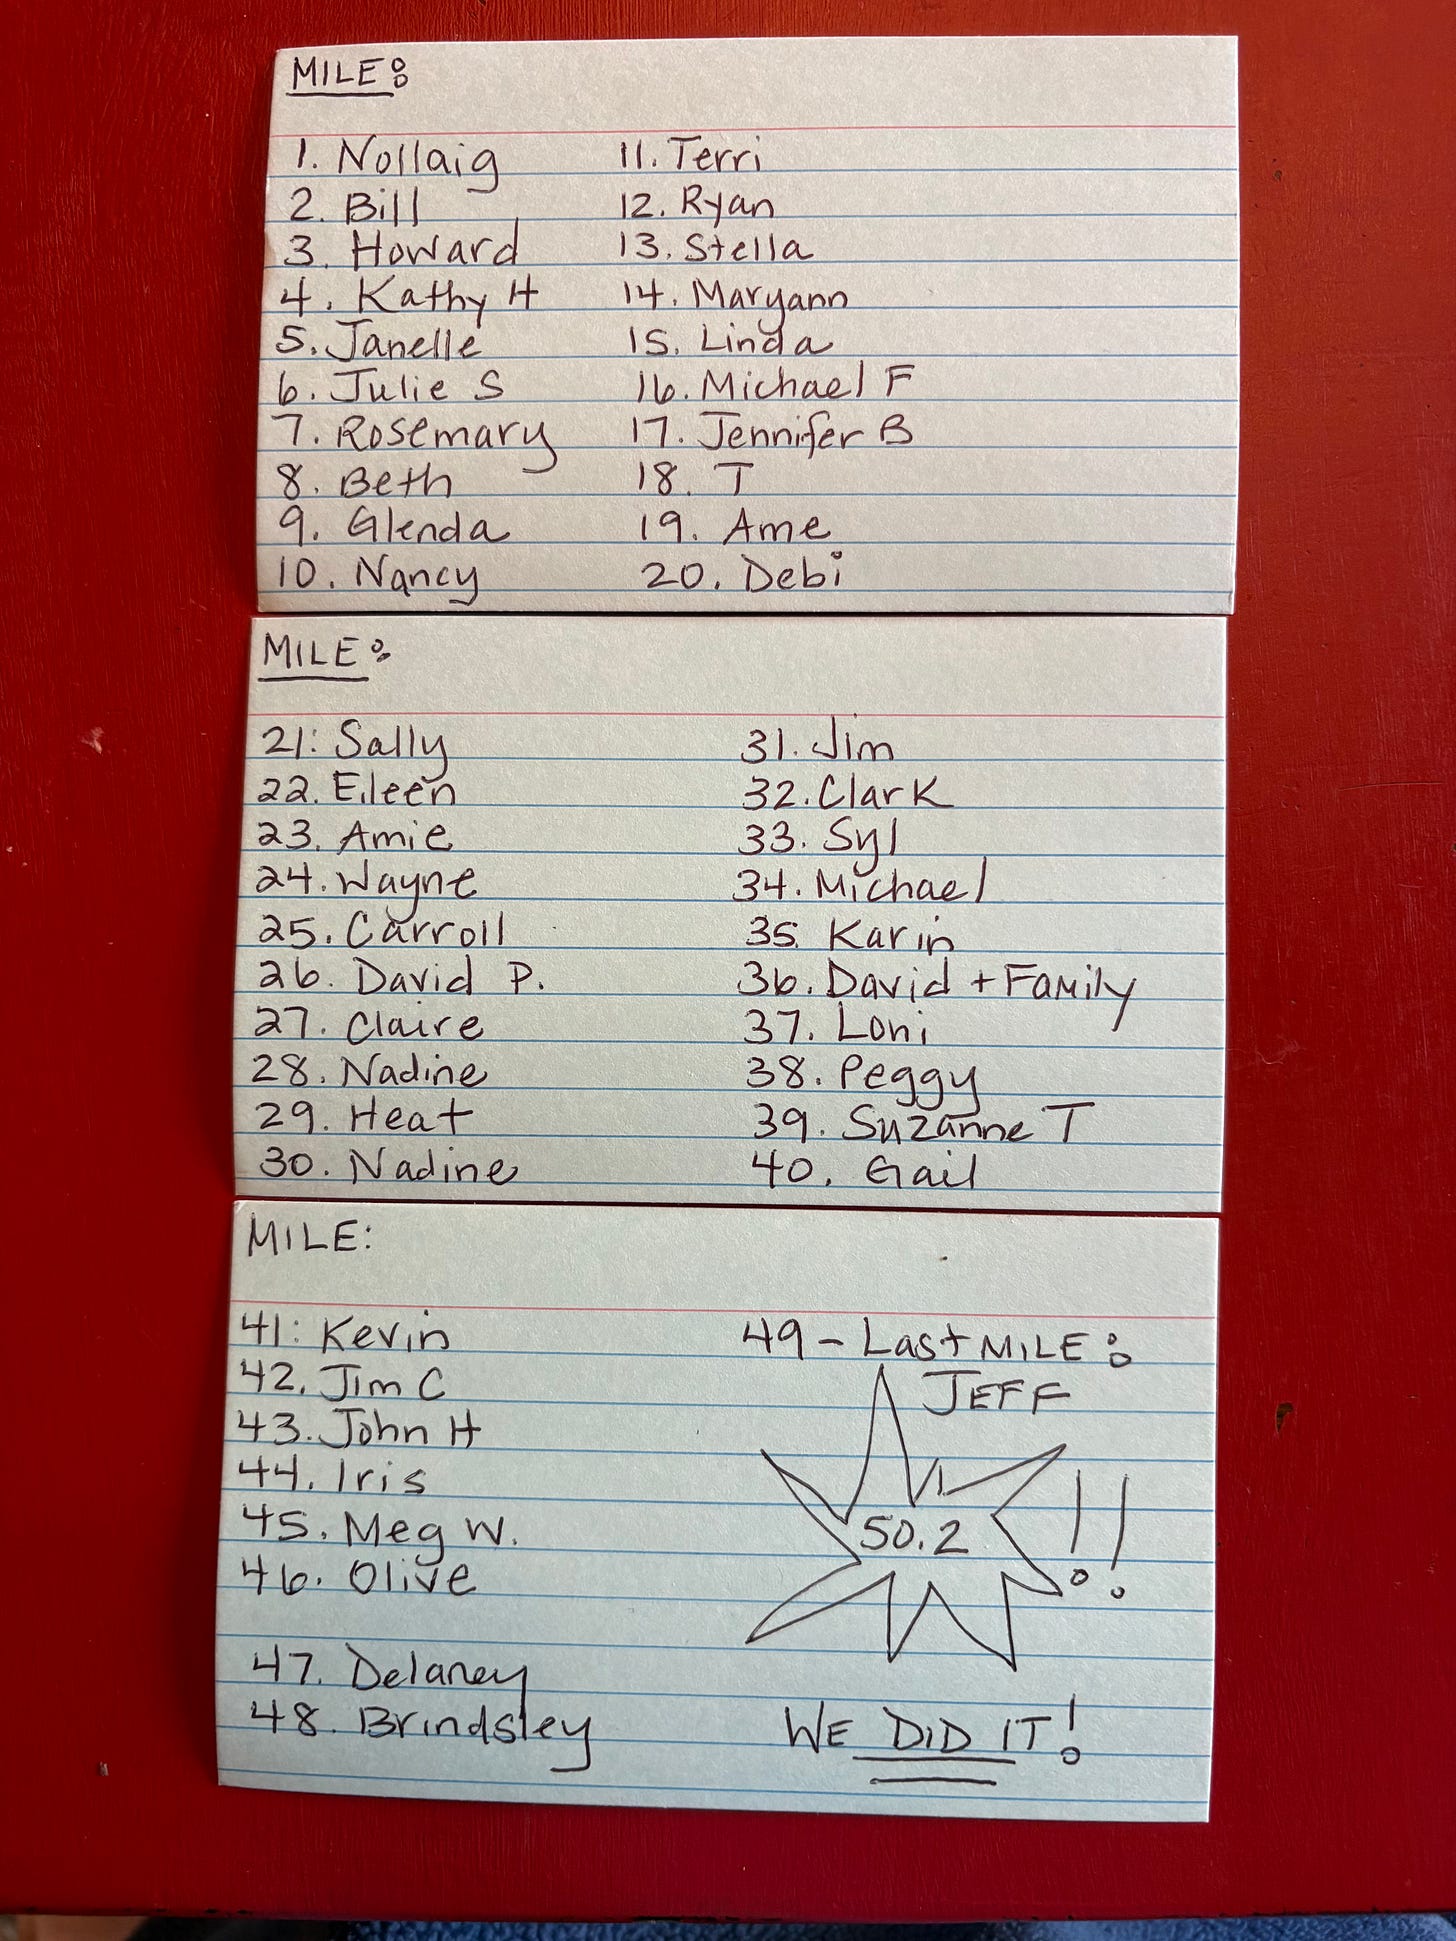 MILE:
1. Nollaig
2. Bill
3. Howard
4. Kathy H
5. Janelle
6. Julie S
7. Rosemary
8. Beth
9. Glenda
10. Nancy
11. Terri
12. Ryan
13. Stella
14. Maryann
15. Linda
16. Michael F
17. Jennifer B
18. T
19. Ame
20. Debi
MILE:
21: Sally
22. Eileen
23. Amie
24. Wayne
25. Carroll
26. David P.
27. Claire
28. Nadine
29. Heat
30. Nadine
31. Jim
32. Clark
33. Syl
34. Michael
35. Karin
36. David + Family
37. Loni
38. Peggy
39. Suzanne T
40. Gail
MILE:
41: Kevin
42. Jim C
43. John H
44. Iris
45. Meg W.
46. Olive
47. Delaney
48. Brindsley
49 - Last MILE:
JEFF
50.2 !!
WE DID IT!